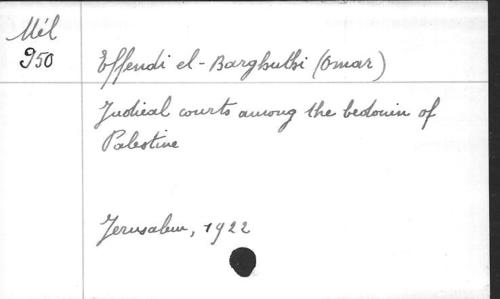 Mél
950
Effendi el-Barghuthi (Omar)
Judical courts among the bedouin of
Palestine
Jerusalem, 1922